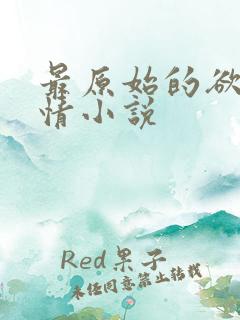 最原始的欲
情小说
Red果子
未经同意禁止转载